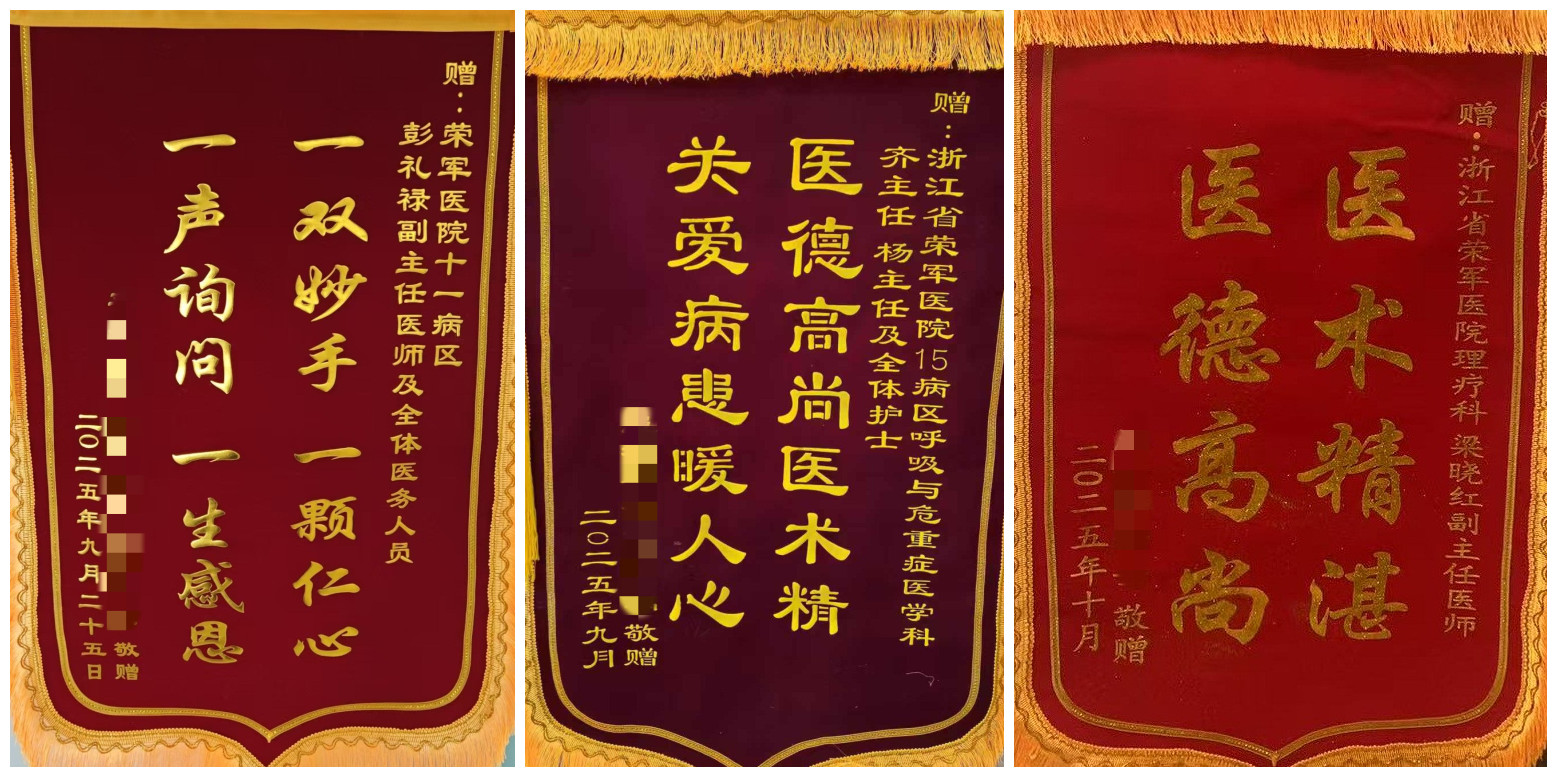 赠：
荣军医院十一病区
彭礼禄副主任医师及全体医务人员
一双妙手 一颗仁心
一声询问 一生感恩
敬赠
二〇二五年九月二十五日
赠：浙江省荣军医院15病区呼吸与危重症医学科
齐主任 杨主任及全体护士
医德高尚医术精
关爱病患暖人心
敬赠
二〇二五年九月
赠：浙江省荣军医院理疗科 梁晓红副主任医师
医术精湛
医德高尚
敬赠
二〇二五年十月